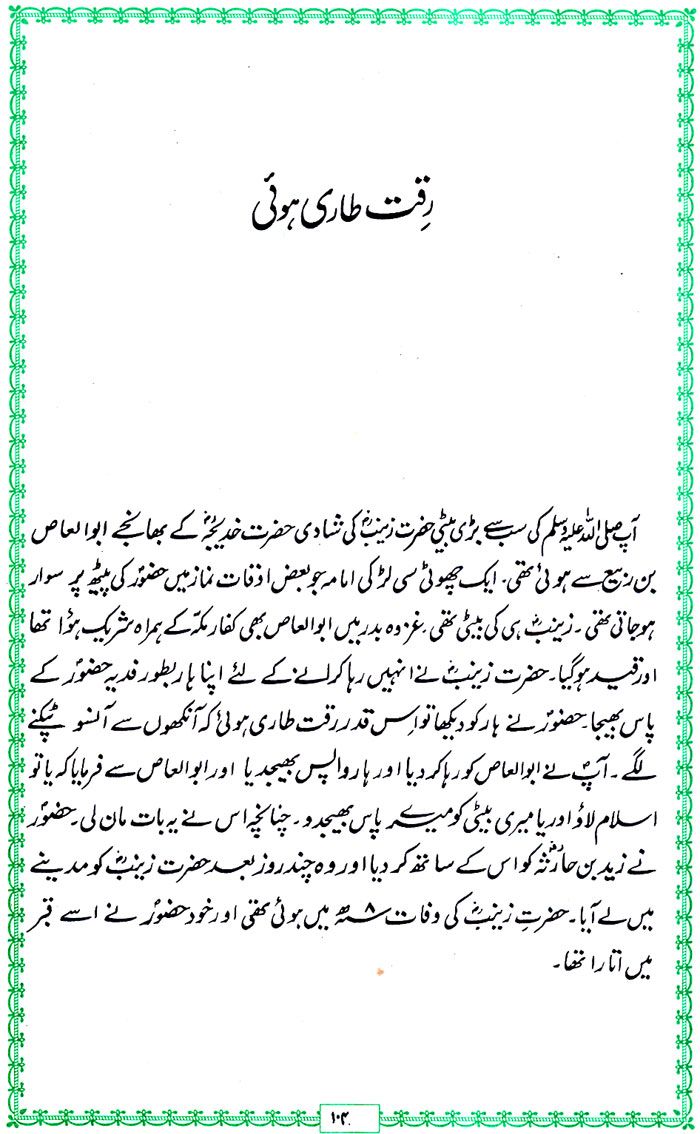 رِقت طاری ہوئی
آپ صلی اللہ علیہ وسلم کی سب سے بڑی بیٹی حضرت زینبؓ کی شادی حضرت خدیجہؓ کے بھانجے ابوالعاص
بن ربیع سے ہوئی تھی۔ ایک چھوٹی سی لڑکی امامہ جو بعض اوقات نماز میں حضورؐ کی پیٹھ پر سوار
ہو جاتی تھی۔ زینبؓ ہی کی بیٹی تھی۔ غزوہ بدر میں ابوالعاص بھی کفار مکہّ کے ہمراہ شریک ہؤا تھا
اور قید ہوگیا۔ حضرت زینبؓ نے انہیں رہا کرانے کے لئے اپنا ہار بطور فدیہ حضورؐ کے
پاس بھیجا۔ حضورؐ نے ہار کو دیکھا تو اس قدر رقت طاری ہوئی کہ آنکھوں سے آنسو ٹپکنے
لگے۔ آپؐ نے ابوالعاص کو رہا کر دیا اور ہار واپس بھیجدیا اور ابوالعاص سے فرمایا کہ یا تو
اسلام لاؤ اور یا میری بیٹی کو میرے پاس بھیجدو۔ چنانچہ اس نے یہ بات مان لی۔ حضورؐ
نے زید بن حارثہؓ کو اس کے ساتھ کر دیا اور وہ چند روز بعد حضرت زینبؓ کو مدینے
میں لے آیا۔ حضرتِ زینبؓ کی وفات ۸ھ میں ہوئی تھی اور خود حضورؐ نے اسے قبر
میں اتارا تھا۔
۱۰۴